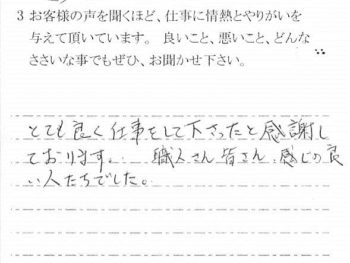 3 お客様の声を聞くほど、仕事に情熱とやりがいを
与えて頂いています。 良いこと、悪いこと、どんな
ささいな事でもぜひ、お聞かせ下さい。
とても良く仕事をして下さったと感謝し
ております。 職人さん皆さん、感じの良
い人たちでした。